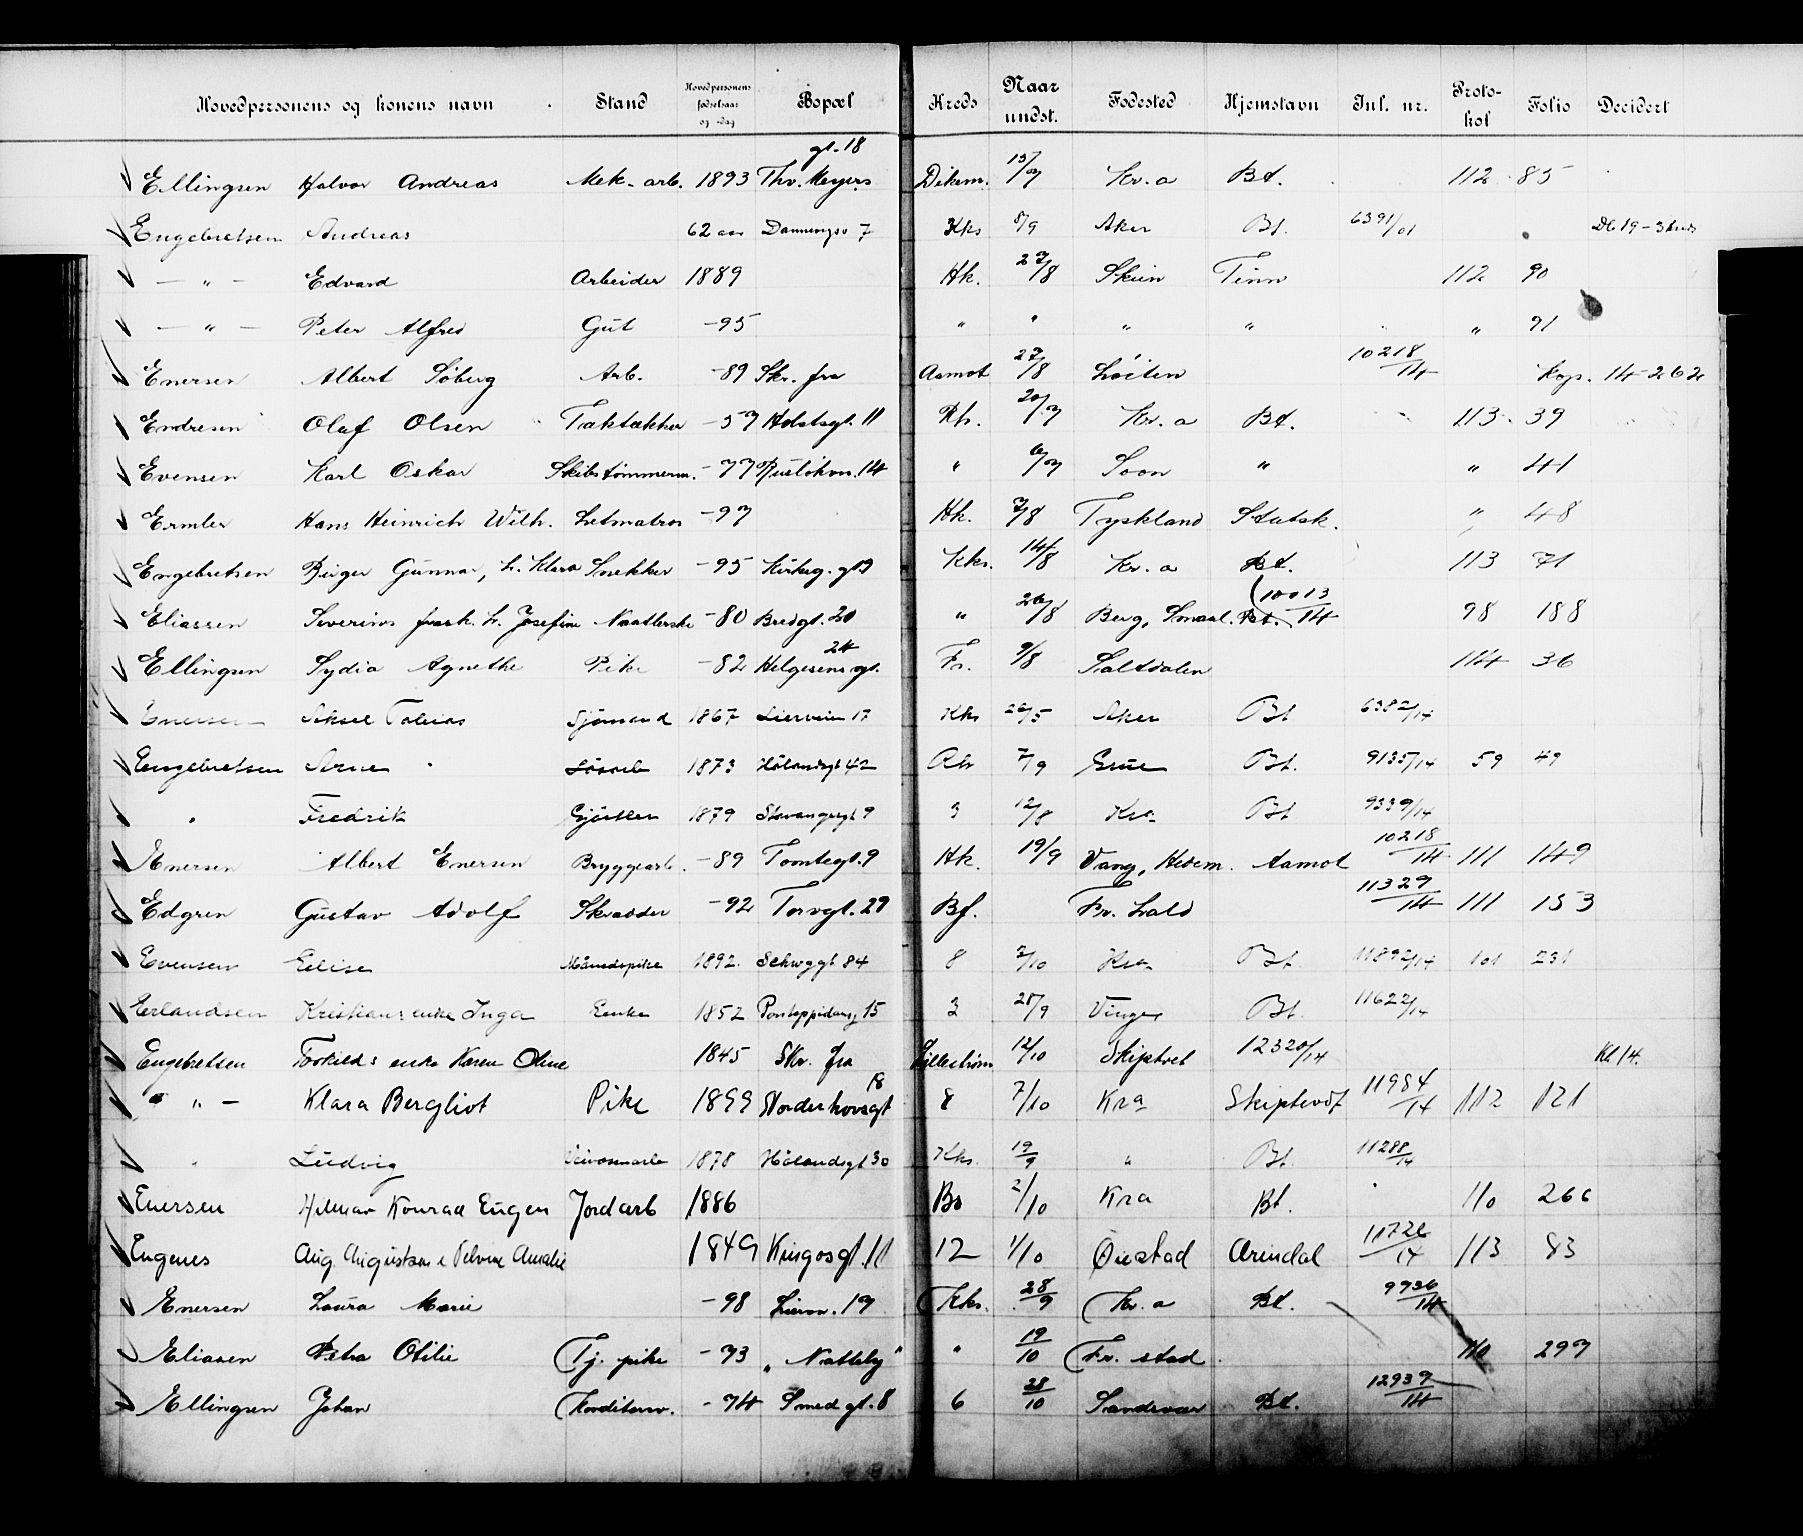 Hovedpersonens og konens navn Stand Hovedpersonens fødselsaar og -dag Bopæl Kreds Naar undst. Fødested Hjemstavn Inl. nr. Protokol Folio Decidert
Ellingsen Halvor Andreas Mek. arb. 1893 Thv. Meyers gt. 18 Dikem. 13/7 Kr.a Bt. 112 85
Engebretsen Andreas 62 aar 7 Kks 8/9 Aker Bt. 6391/01
— " — Edvard Arbeider 1889 Hk. 27/8 Skien Tinn 112 90
— " — Peter Alfred Gut -95 " " " " " 91
Enersen Albert Søberg Arb. -89 Skr. fra Aamot 27/8 Løiten 10218/14 Kop. 14-262
Endresen Olaf Olsen Taktækker -57 Holstsgt. 11 Rh. 20/7 Kr.a Bt. 113 39
Evensen Karl Oskar Skibstømmerm. -77 Rusløkvn. 14 " 6/7 Soon " " 41
Ermler Hans Heinrich Wilh. Letmatros -97 Hk. 7/8 Tyskland Statsk. " 48
Engebretsen Birger Gunnar, h. Klara Snekker -95 Kirkeg. gt Kks. 14/8 Kr.a Bt. 113 71
Eliassen Severins frask. h. Josefine -80 Bredgt. 20 " 26/8 Berg, Smaal. Bt. (10013/14 98 188
Ellingsen Lydia Agnethe Pike -82 Helgesens gt. 24 Fr. 9/8 Saltdalen 114 36
Enersen Aksel Tobias Sjømand 1867 Lierveien 17 Kks 26/5 Aker Bt 6382/14
Engebretsen Arne Løsarb 1873 Hølandsgt 42 7/9 Grue Bt. 9135/14 59 49
" Fredrik Gjørtler 1879 Stavangergt 9 3 12/8 Kra Bt 9339/14
Enersen Albert Enersen Bryggearb. -89 Tomtegt. 9 Hk. 19/9 Vang, Hedem. Aamot 10218/14 111 149
Edgren Gustav Adolf Skrædder -92 Torvgt. 29 Bf. Fr. hald 11329/14 111 153
Evensen Elise 1892. Schwggt 84 8 2/10 Kra Bt 11892/14 101 231
Erlandsen Kristians enke Inga Enke 1852 Pontoppidansg 15 3 28/9 Vinger Bt. 11622/14
Engebretsen Torkilds enke Karen Oline 1845 Skr. fra Lillestrøm 12/10 Skiptvet 12320/14 Kl 14.
" — Klara Bergliot Pike 1899 Norderhovsgt 18 8 7/10 Kra Skiptvedt 11984/14 112 121
" Ludvig 1878 Hølandsgt 30 Kks. 19/9 " Bt. 11288/14
Enersen Hilmar Konrad Eugen Jordarb 1886 Bo 2/10 Kra Bt. 110 266
Engenes Aug. Augustsens e Amalie 1849 Kingosgt. 11 12 1/10 Øiestad Arendal 11726/14 113 83
Enersen Laura Marie -98 Lierv. 19 Kks. 28/9 Kr.a Bt. 9736/14
Eliasen Petra Otilie Tj. pike -93 "Natteby" " 19/10 Fr. stad 110 297
Ellingsen Johan Konditorsv. -74 Smedgt. 8 6 28/10 Sandsvær Bt. 12939/14